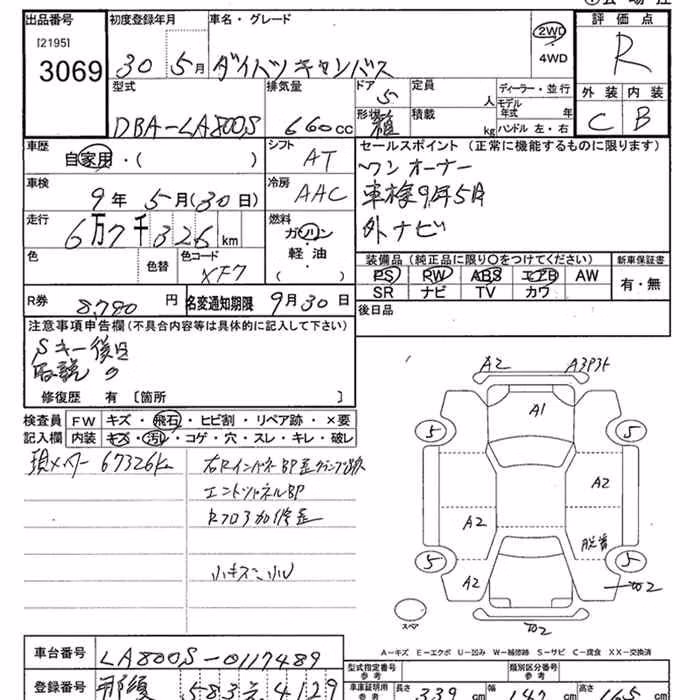 出品番号 初度登録年月 車名・グレード 評価点
[2195] 30 5月 ダイハツ キャンバス 2WD R
3069 4WD
型式 排気量 ドア 5 定員 人 ディーラー・並行 外装 内装
DBA-LA800S 660cc 形状 箱 積載 kg モデル年式 年 C B
ハンドル 左・右
車歴 自家用・( ) シフト AT セールスポイント(正常に機能するものに限ります)
ワンオーナー
車検 9年 5月(30日) 冷房 AAC 車検9年5月
走行 6万7千326km 燃料 ガソリン 外ナビ
軽油
( )
色 色替 色コード XF7 装備品(純正品に限り○をつけてください) 新車保証書
PS PW ABS エアB AW 有・無
SR ナビ TV カワ
R券 8,780円 名変通知期限 9月30日 後日品
注意事項申告欄(不具合内容等は具体的に記入して下さい)
Sキー後日
取説 〃
修復歴 有〔箇所 〕
検査員 FW キズ・飛石・ヒビ割・リペア跡・×要
記入欄 内装 キズ・汚レ・コゲ・穴・スレ・キレ・破レ
現メーター 67326km
エンドパネルBP
小キズ 小凹
A2 A3P3
A1
5 5
A2
A2
脱着
5 5
A2
W2
スペア W2
A-キズ E-エクボ U-凹み W-補修跡 S-サビ C-腐食 XX-交換済
車台番号 LA800S-0117489
型式指定番号 参考 類別区分番号 参考
登録番号 那須 583 え 4129 車庫証明用 参考 長さ 339cm 幅 147cm 高さ 165cm